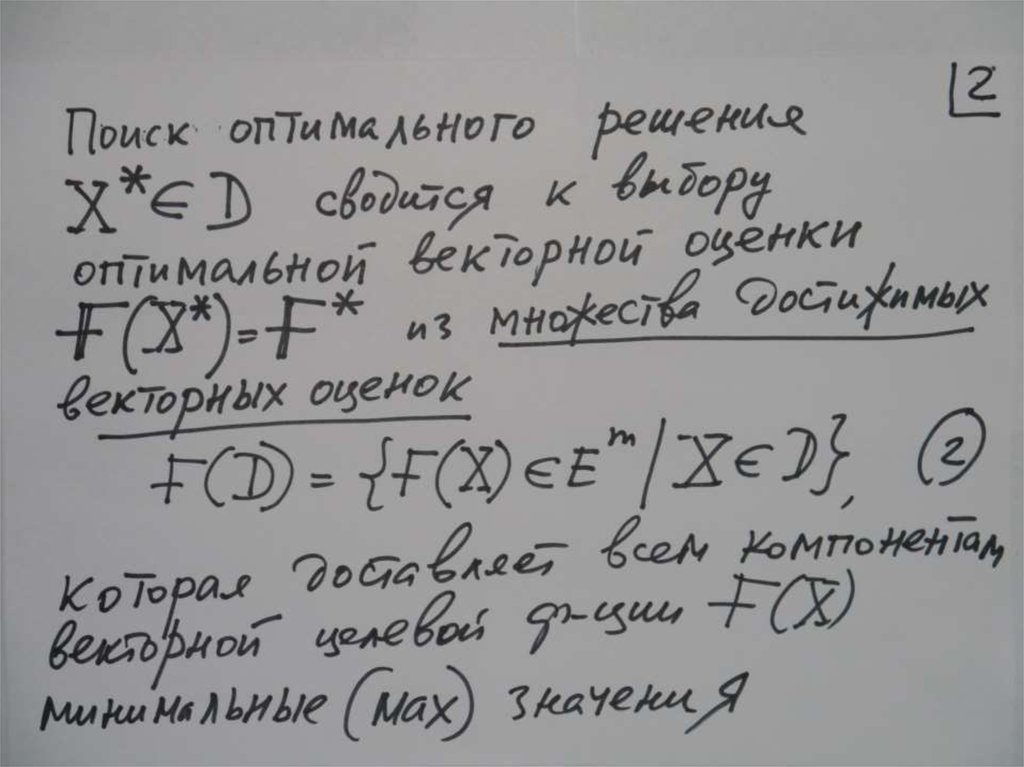 2
Поиск оптимального решения
X* ∈ D сводится к выбору
оптимальной векторной оценки
F(X*) = F* из множества достижимых
векторных оценок
F(D) = {F(X) ∈ E^m | X ∈ D}, (2)
которая доставляет всем компонентам
векторной целевой ф-ции F(X)
минимальные (мах) значения